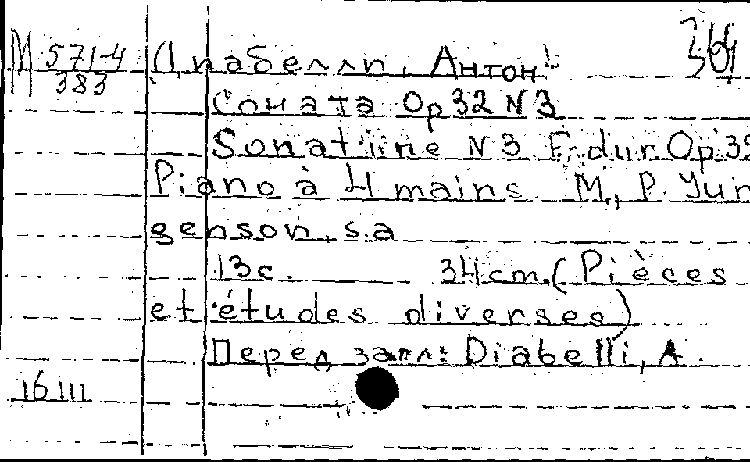 М 571-4 Диабелли, Антон 364
383
Соната Ор 32 N 3
Sonatine N 3 F-dur Op 32
Piano à 4 mains M., P. Yur
genson, s.a
13с. 34cm. (Pièces
et études diverses)
Перед загл: Diabelli, A.
16 III